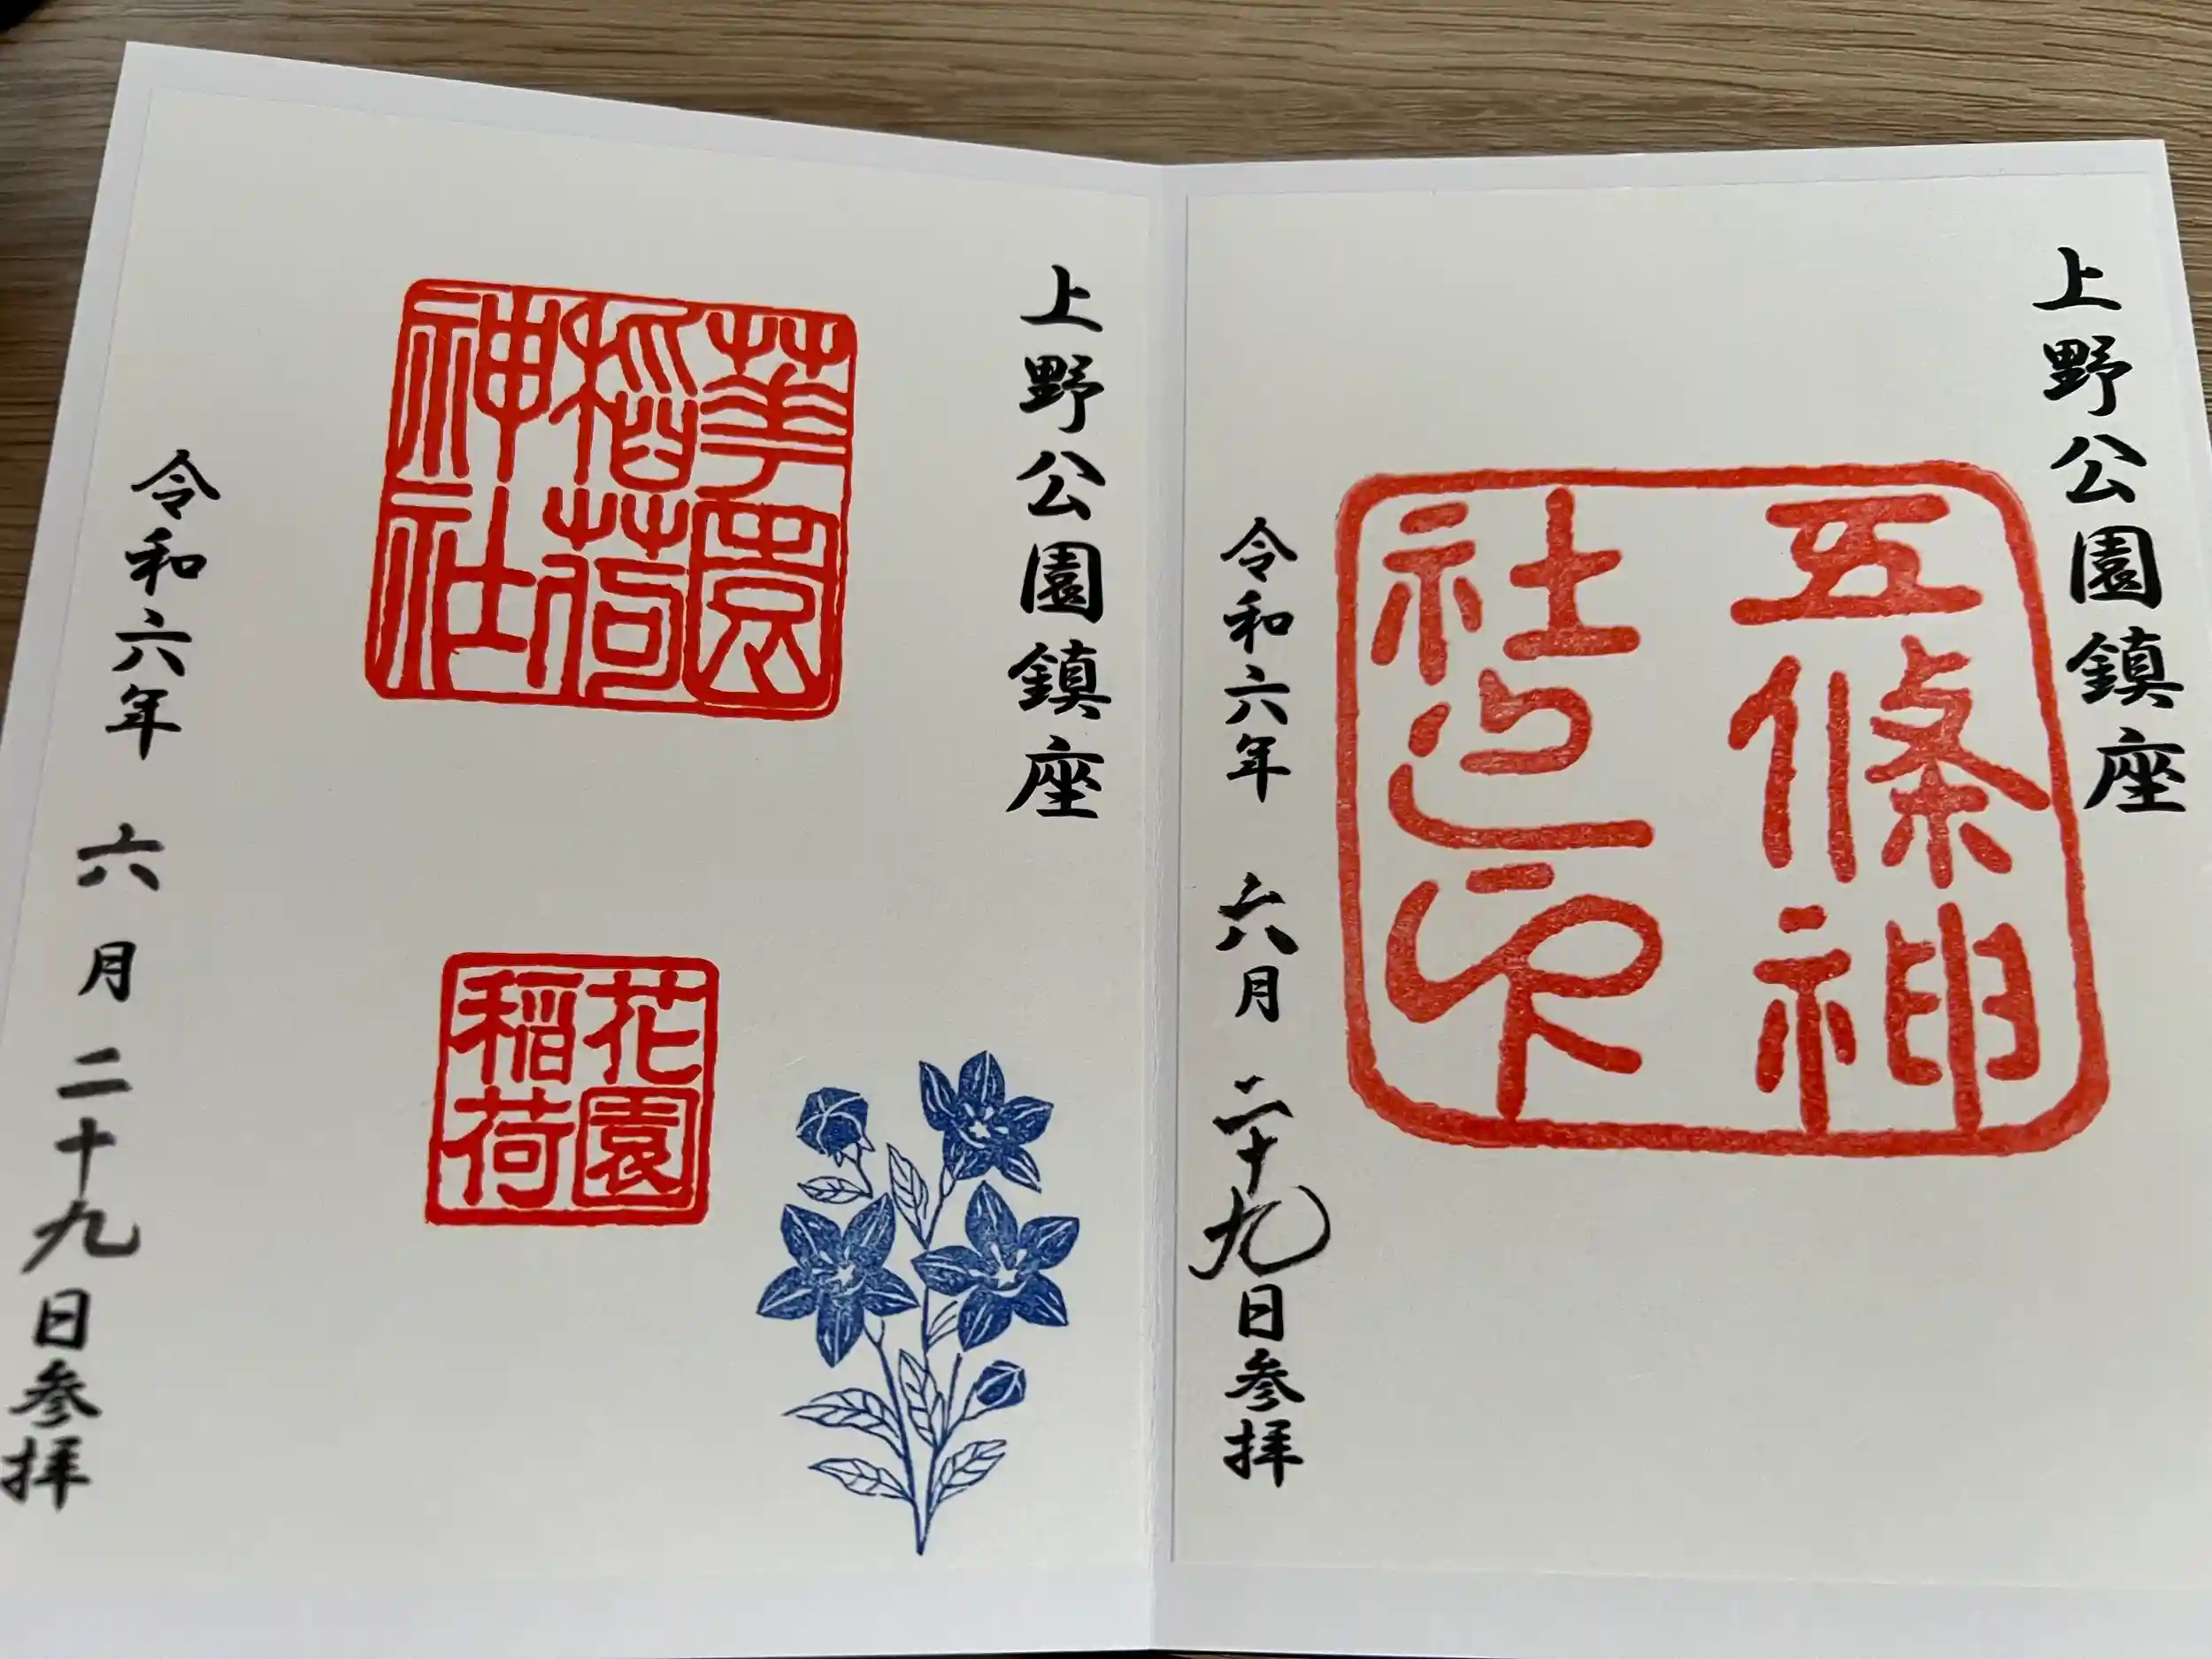 上野公園鎮座
五條神
社之印
令和六年 六月 二十九日参拝
上野公園鎮座
華園
稲荷
神社
花園
稲荷
令和六年 六月二十九日参拝